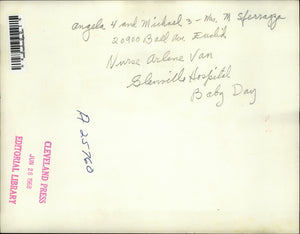 Angela 4 and Michael 3 - Mrs. M Sferrazza
20900 Ball Av. Euclid
Nurse Arlene Van
Glenville Hospital
Baby Day
A 25760
CLEVELAND PRESS
JUN 28 1962
EDITORIAL LIBRARY